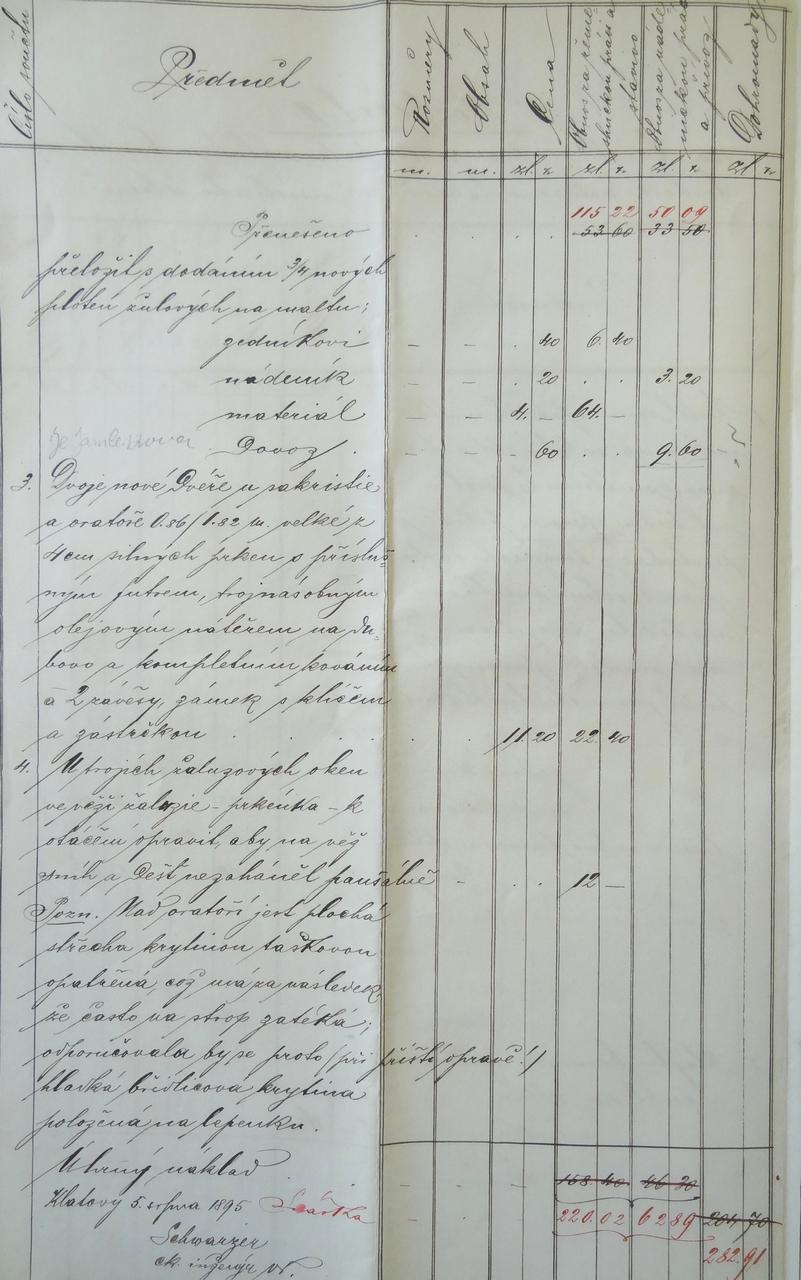 Číslo součtu Předmět Rozměry Obsah Cena Obnos za řeme- Obnos za náde- Dohromady
slnickou práci a nickou práci
stavivo a přívoz
m. m. zl. kr. zl. kr. zl. kr. zl. kr.
115 22 50 09
Přenešeno . . . . 53 60 33 50
přeložit s dodáním 3/4 nových
ploten žulových na maltu;
zedníkovi — — . 40 6. 40
nádeník — — . 20 . . 3. 20
materiál — — 4. — 64. —
Dovoz . — — — 60 . . 9. 60
3. Dvoje nové Dvéře u sakristie
a oratoře 0.86/1.82 m. velké z
4cm silných prken s přísluš-
ným futrem, trojnásobným
olejovým nátěrem na du-
bovo a kompletním kováním
a 2 závěsy, zámek s klíčem
a zástrčkou . . . . . . 11. 20 22. 40
4. U trojích žaluzových oken
ve věži žaluzie - prkénka - k
otáčení opravit, aby na věž
sníh a Dešť nezaháněl paušálně — . . 12 —
Pozn. Nad oratoří jest plochá
střecha krytinou taškovou
opatřená, což má za následek,
že často na strop zatéká;
odporučovala by se proto (při příští opravě!)
hladká břidlicová krytina
položená na lepenku.
Úhrný náklad — — — 158 40 46 30
Klatovy 5. srpna 1895 Částka — . 220. 02 62 89 204 70
Schwarzer 282. 91
ck. inženýr